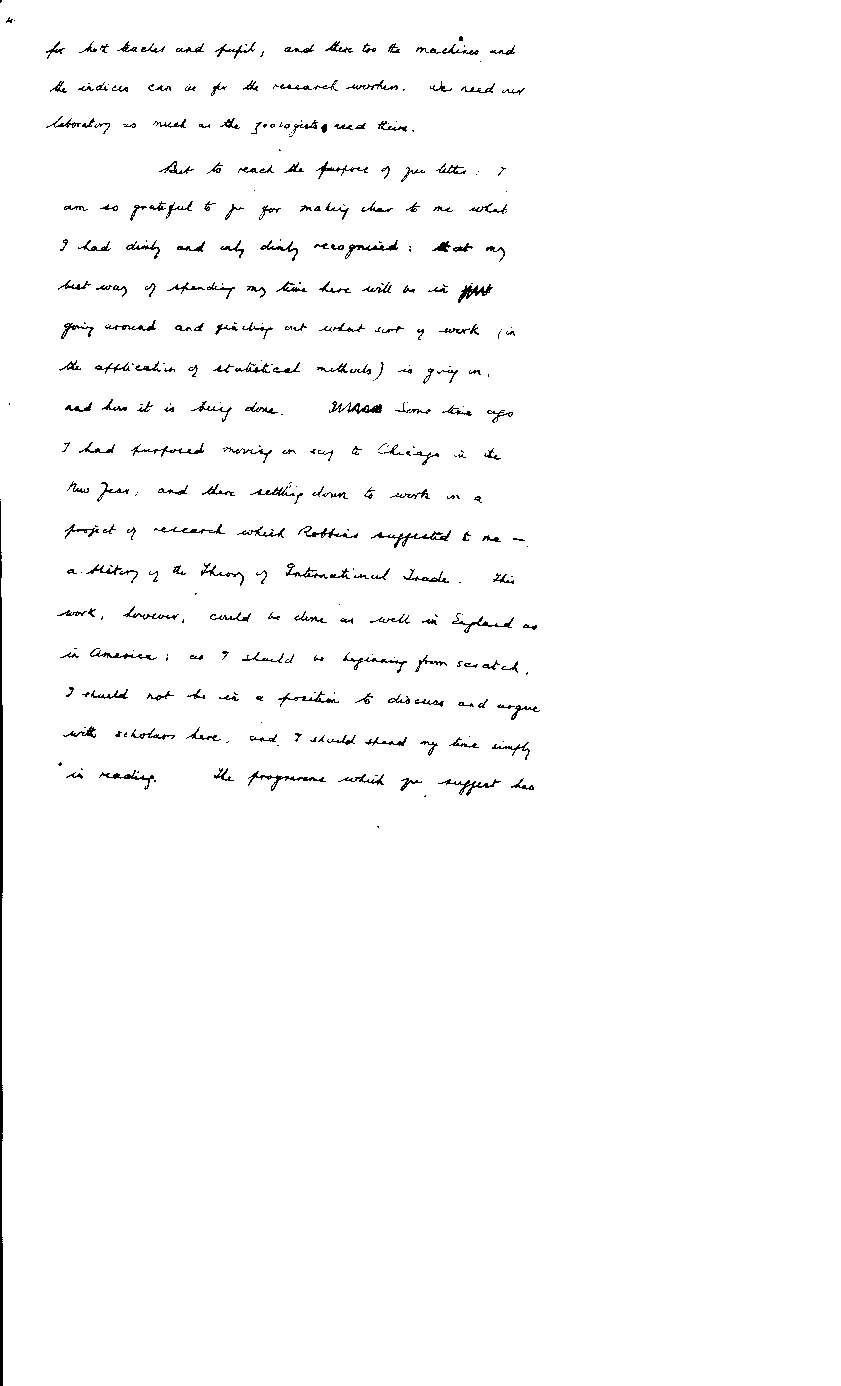 4.
for both teacher and pupil, and there too the machines and
the indices can be for the research workers. We need our
laboratory as much as the zoologists need theirs.
But to reach the purpose of your letter: I
am so grateful to you for making clear to me what
I had dimly and only dimly recognised: that my
best way of spending my time here will be in just
going around and finding out what sort of work (in
the application of statistical methods) is going on,
and how it is being done. Some time ago
I had purposed moving on say to Chicago in the
New Year, and there settling down to work on a
project of research which Robbins suggested to me —
a History of the Theory of International Trade. This
work, however, could be done as well in England as
in America; as I should be beginning from scratch,
I should not be in a position to discuss and argue
with scholars here, and I should spend my time simply
in reading. The programme which you suggest has